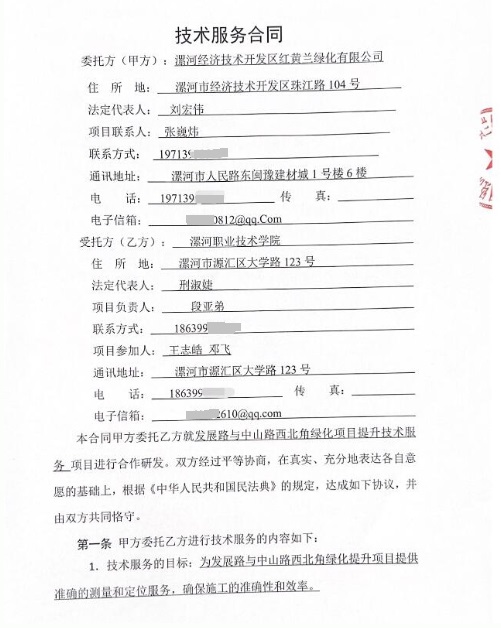 技术服务合同
委托方（甲方）：漯河经济技术开发区红黄兰绿化有限公司
住 所 地：漯河市经济技术开发区珠江路 104 号
法定代表人：刘宏伟
项目联系人：张巍炜
联系方式：19713
通讯地址：漯河市人民路东闽豫建材城 1 号楼 6 楼
电 话：19713 传 真：
电子信箱：0812@qq.Com
受托方（乙方）：漯河职业技术学院
住 所 地：漯河市源汇区大学路 123 号
法定代表人：刑淑婕
项目负责人：段亚弟
联系方式：186399
项目参加人：王志皓 邓飞
通讯地址：漯河市源汇区大学路 123 号
电 话：18639 传 真：
电子信箱：2610@qq.com
本合同甲方委托乙方就发展路与中山路西北角绿化项目提升技术服
务 项目进行合作研发。双方经过平等协商，在真实、充分地表达各自意
愿的基础上，根据《中华人民共和国民法典》的规定，达成如下协议，并
由双方共同恪守。
第一条 甲方委托乙方进行技术服务的内容如下：
1．技术服务的目标：为发展路与中山路西北角绿化提升项目提供
准确的测量和定位服务，确保施工的准确性和效率。